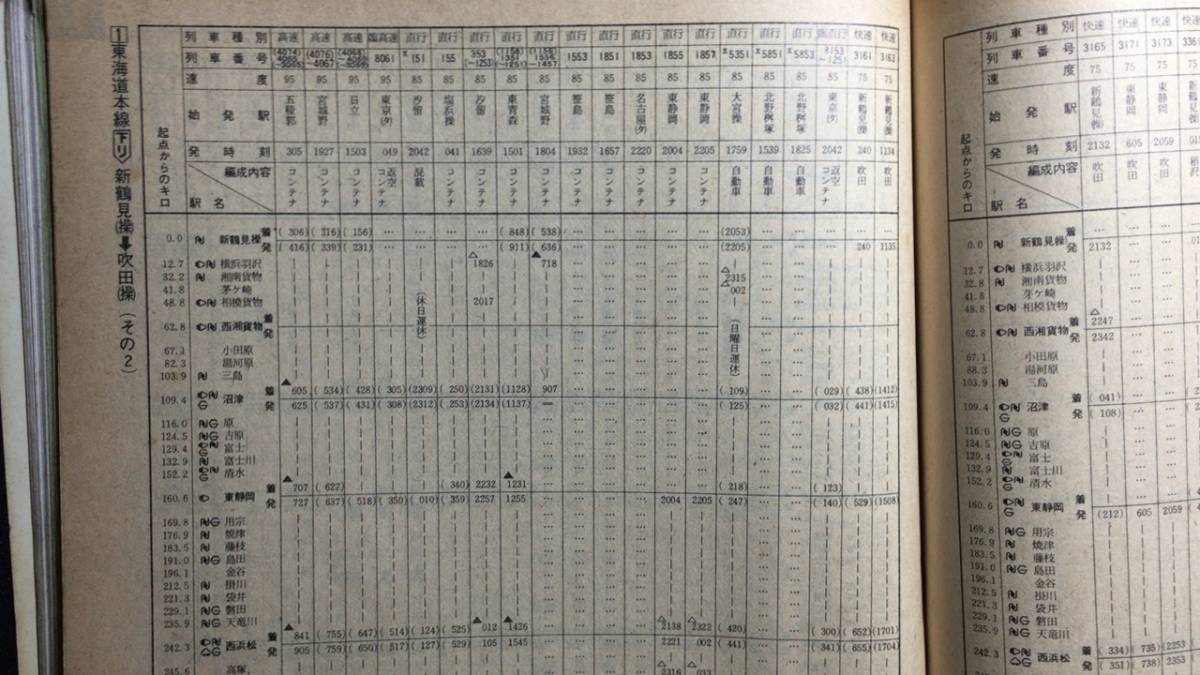 1 東海道本線 下り 新鶴見(操)➡吹田(操) (その2)
列車種別 高速 高速 高速 臨高速 直行 直行 直行 直行 直行 直行 直行 直行 直行 直行 直行 直行 直行 臨直行 快速 快速
列車番号 8061 151 155 353 1553 1851 1853 1855 1857 5351 5851 5853 8153 3161 3163
速度 95 95 95 95 85 85 85 85 85 85 85 85 85 85 85 85 85 85 75 75
始発駅 五稜郭 宮城野 日立 東京(タ) 汐留 塩浜操 汐留 東青森 宮城野 笹島 笹島 名古屋(タ) 東静岡 東静岡 大宮操 北野桝塚 北野桝塚 東京(タ) 新鶴見(操) 新鶴見(操)
発時刻 305 1927 1503 049 2042 041 1639 1501 1804 1932 1657 2220 2004 2205 1759 1539 1825 2042 240 1134
編成内容 コンテナ コンテナ コンテナ 返空コンテナ 混載 コンテナ コンテナ コンテナ コンテナ コンテナ コンテナ コンテナ コンテナ コンテナ 自動車 自動車 自動車 返空コンテナ 吹田 吹田
駅名
起点からのキロ
0.0 新鶴見操 着 (306) (316) (156) (848) (538) (2053)
発 (416) (339) (231) (911) (636) (2205) 240 1135
12.7 横浜羽沢 1826 718
32.2 湘南貨物 2315
41.8 茅ケ崎 002
48.8 相模貨物 2017
(休日運休)
(日曜日運休)
62.8 西湘貨物 着 発
67.1 小田原
82.3 湯河原
103.9 三島
109.4 沼津 着 605 (534) (428) (305) (2309) (250) (2131) (1128) 907 (109) (029) (438) (1412)
発 625 (537) (431) (308) (2312) (253) (2134) (1137) (125) (032) (441) (1415)
116.0 原
124.5 吉原
129.4 富士
132.9 富士川
152.2 清水
160.6 東静岡 着 707 (627) (340) 2232 1231 (218) (123)
発 727 (637) (518) (350) (010) (359) 2257 1255 2004 2205 (247) (140) (529) (1508)
169.8 用宗
176.9 焼津
183.5 藤枝
191.0 島田
196.1 金谷
212.5 掛川
221.3 袋井
229.1 磐田
235.9 天竜川
242.3 西浜松 着 841 (755) (647) (514) (124) (525) 012 1426 2138 2322 (420) (300) (652) (1701)
発 905 (759) (650) (517) (127) (529) 105 1545 2221 002 (441) (341) (655) (1704)
245.6 高塚
列車種別 快速 快速 快速
列車番号 3165 3171 3173
速度 75 75 75
始発駅 新鶴見(操) 東静岡 東静岡
発時刻 2132 605 2059
編成内容 吹田 吹田 吹田
駅名
起点からのキロ
0.0 新鶴見操 着
発 2132
12.7 横浜羽沢
32.8 湘南貨物
41.8 茅ケ崎
48.8 相模貨物
62.8 西湘貨物 着 2247
発 2342
67.1 小田原
88.3 湯河原
103.9 三島
109.4 沼津 着 (041)
発 (108)
116.0 原
124.5 吉原
129.4 富士
132.9 富士川
152.2 清水
160.6 東静岡 着
発 (212) 605 2059
169.8 用宗
176.9 焼津
183.5 藤枝
191.0 島田
196.1 金谷
212.5 掛川
221.3 袋井
229.1 磐田
235.9 天竜川
242.3 西浜松 着 (334) (735) (2253)
発 (351) (738) 2353